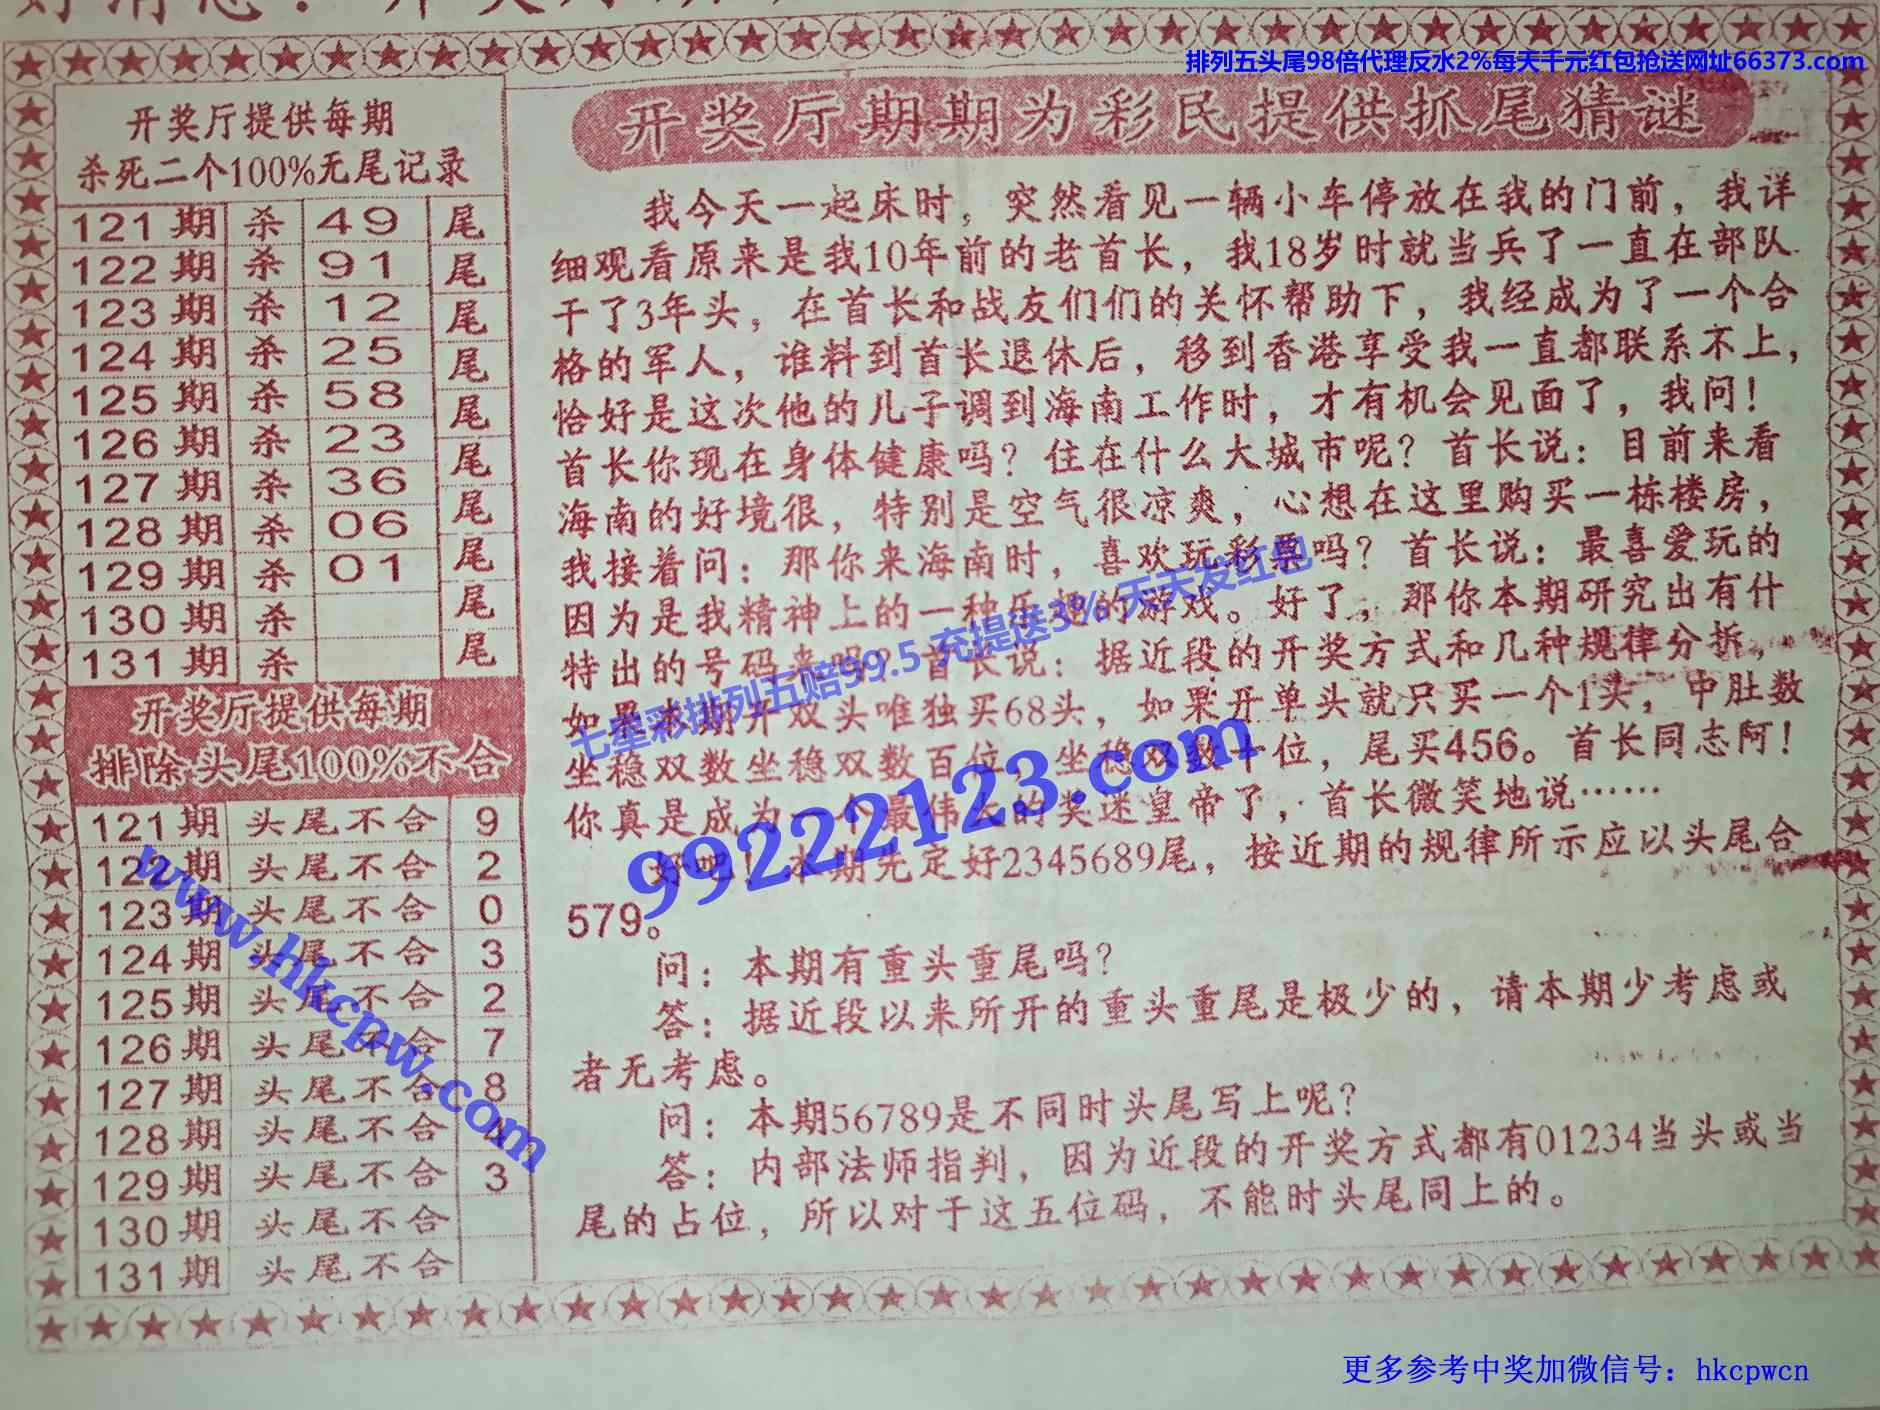 排列五头尾98倍代理反水2%每天千元红包抢送网址66373.com
开奖厅提供每期
杀死二个100%无尾记录
121期 杀 49 尾
122期 杀 91 尾
123期 杀 12 尾
124期 杀 25 尾
125期 杀 58 尾
126期 杀 23 尾
127期 杀 36 尾
128期 杀 06 尾
129期 杀 01 尾
130期 杀 尾
131期 杀
开奖厅提供每期
排除头尾100%不合
121期 头尾不合 9
122期 头尾不合 2
123期 头尾不合 0
124期 头尾不合 3
125期 头尾不合 2
126期 头尾不合 7
127期 头尾不合 8
128期 头尾不合
129期 头尾不合 3
130期 头尾不合
131期 头尾不合
开奖厅期期为彩民提供抓尾猜谜
我今天一起床时，突然看见一辆小车停放在我的门前，我详
细观看原来是我10年前的老首长，我18岁时就当兵了一直在部队
干了3年头，在首长和战友们们的关怀帮助下，我经成为了一个合
格的军人，谁料到首长退休后，移到香港享受我一直都联系不上，
恰好是这次他的儿子调到海南工作时，才有机会见面了，我问！
首长你现在身体健康吗？住在什么大城市呢？首长说：目前来看
海南的好境很，特别是空气很凉爽，心想在这里购买一栋楼房，
我接着问：那你来海南时，喜欢玩彩票吗？首长说：最喜爱玩的
因为是我精神上的一种乐趣的游戏。好了，那你本期研究出有什
特出的号码来吗？首长说：据近段的开奖方式和几种规律分拆，
如果本期开双头唯独买68头，如果开单头就只买一个1头，中肚数
坐稳双数坐稳双数百位，坐稳双数十位，尾买456。首长同志阿！
你真是成为一个最伟大的奖迷皇帝了，首长微笑地说……
好吧！本期先定好2345689尾，按近期的规律所示应以头尾合
579。
问：本期有重头重尾吗？
答：据近段以来所开的重头重尾是极少的，请本期少考虑或
者无考虑。
问：本期56789是不同时头尾写上呢？
答：内部法师指判，因为近段的开奖方式都有01234当头或当
尾的占位，所以对于这五位码，不能时头尾同上的。
七星彩排列五赔99.5 充提送3% 天天发红包
99222123.com
www.hkcpw.com
更多参考中奖加微信号：hkcpwcn